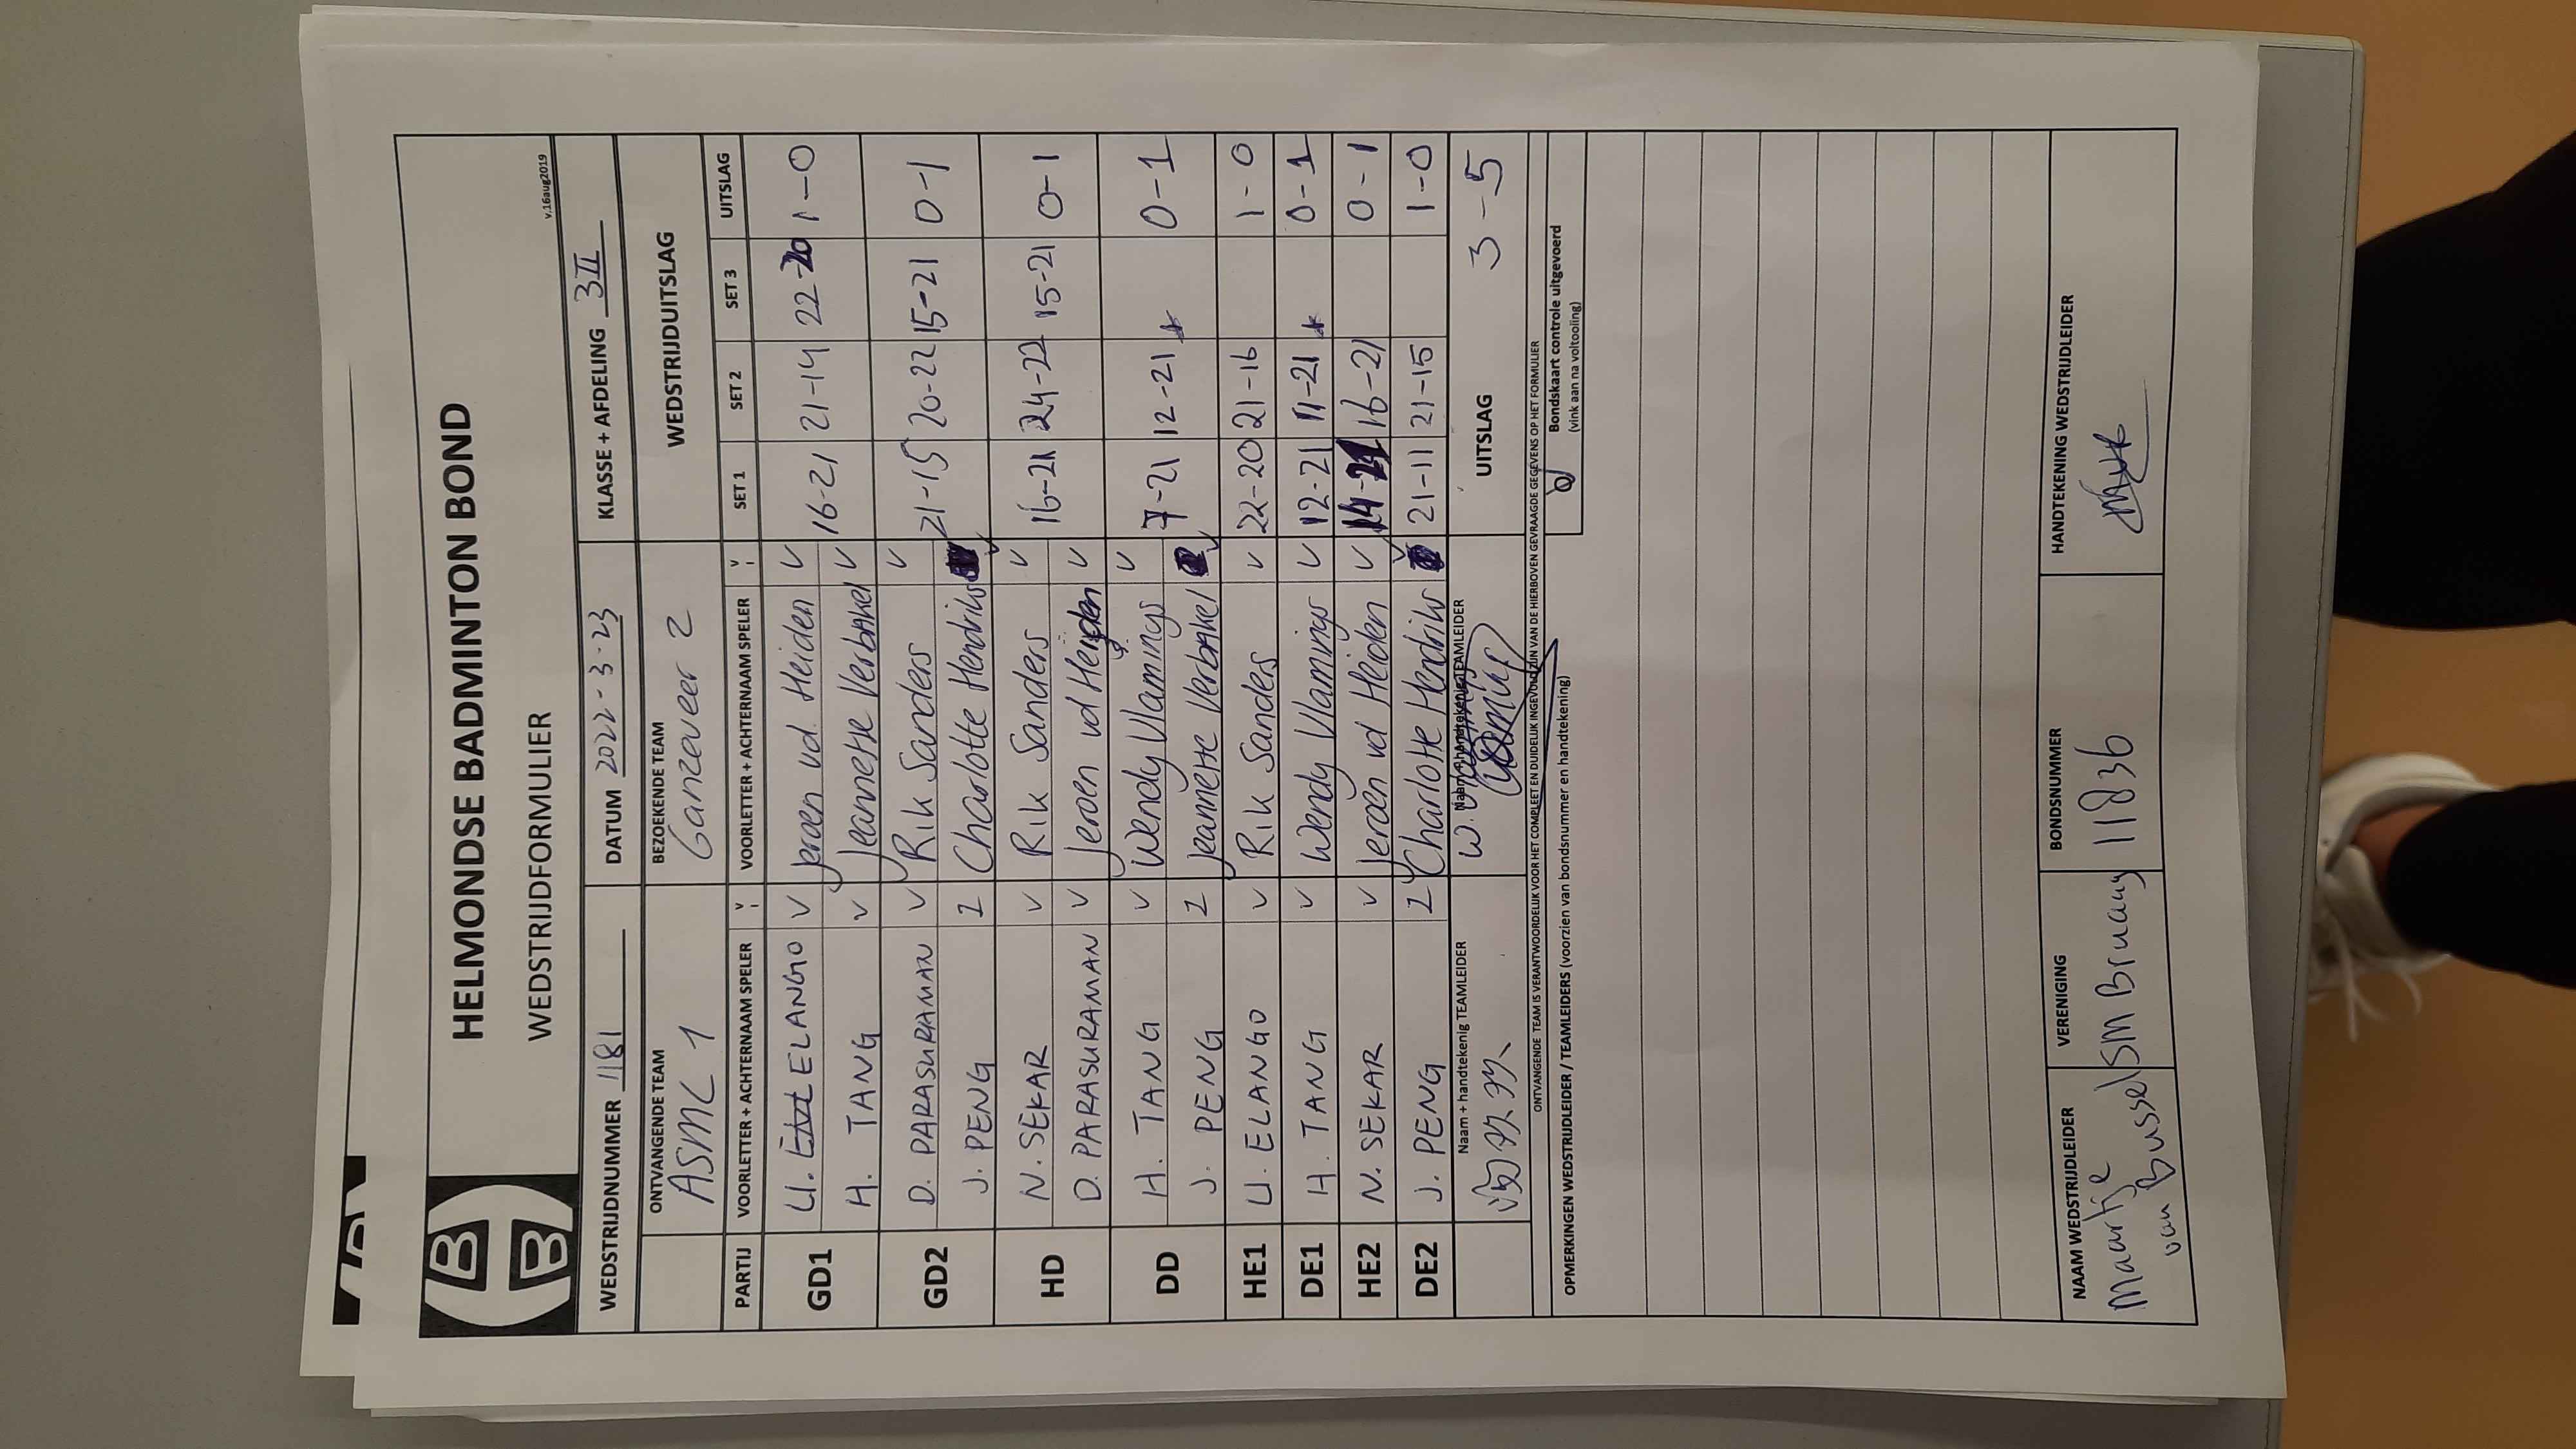 HELMONDSE BADMINTON BOND
WEDSTRIJDFORMULIER
v.16aug2019
WEDSTRIJDNUMMER 1181 DATUM 2022-3-23 KLASSE + AFDELING 3II
ONTVANGENDE TEAM BEZOEKENDE TEAM WEDSTRIJDUITSLAG
ASML 1 Ganzeveer 2
PARTIJ VOORLETTER + ACHTERNAAM SPELER V VOORLETTER + ACHTERNAAM SPELER V SET 1 SET 2 SET 3 UITSLAG
GD1 U. ELANGO V Jeroen vd. Heiden V 16-21 21-14 22-20 1-0
H. TANG V Jeannette Verbakel V
GD2 D. PARASURAMAN V Rik Sanders V 21-15 20-22 15-21 0-1
J. PENG I Charlotte Hendriks V
HD N. SEKAR V Rik Sanders V 16-21 24-22 15-21 0-1
D. PARASURAMAN V Jeroen vd Heijden V
DD H. TANG V Wendy Vlamings V 7-21 12-21 0-1
J. PENG I Jeannette Verbakel V
HE1 U. ELANGO V Rik Sanders V 22-20 21-16 1-0
DE1 H. TANG V Wendy Vlamings V 12-21 11-21 0-1
HE2 N. SEKAR V Jeroen vd Heiden V 14-21 16-21 0-1
DE2 J. PENG I Charlotte Hendriks V 21-11 21-15 1-0
Naam + handtekenig TEAMLEIDER Naam + handtekenig TEAMLEIDER UITSLAG 3-5
W. Vlamings
ONTVANGENDE TEAM IS VERANTWOORDELIJK VOOR HET COMPLEET EN DUIDELIJK INGEVULD ZIJN VAN DE HIERBOVEN GEVRAAGDE GEGEVENS OP HET FORMULIER
OPMERKINGEN WEDSTRIJDLEIDER / TEAMLEIDERS (voorzien van bondsnummer en handtekening)
Bondskaart controle uitgevoerd
(vink aan na voltooling)
NAAM WEDSTRIJDLEIDER VERENIGING BONDSNUMMER HANDTEKENING WEDSTRIJDLEIDER
Maartje SM Bruaay 11836
van Bussel